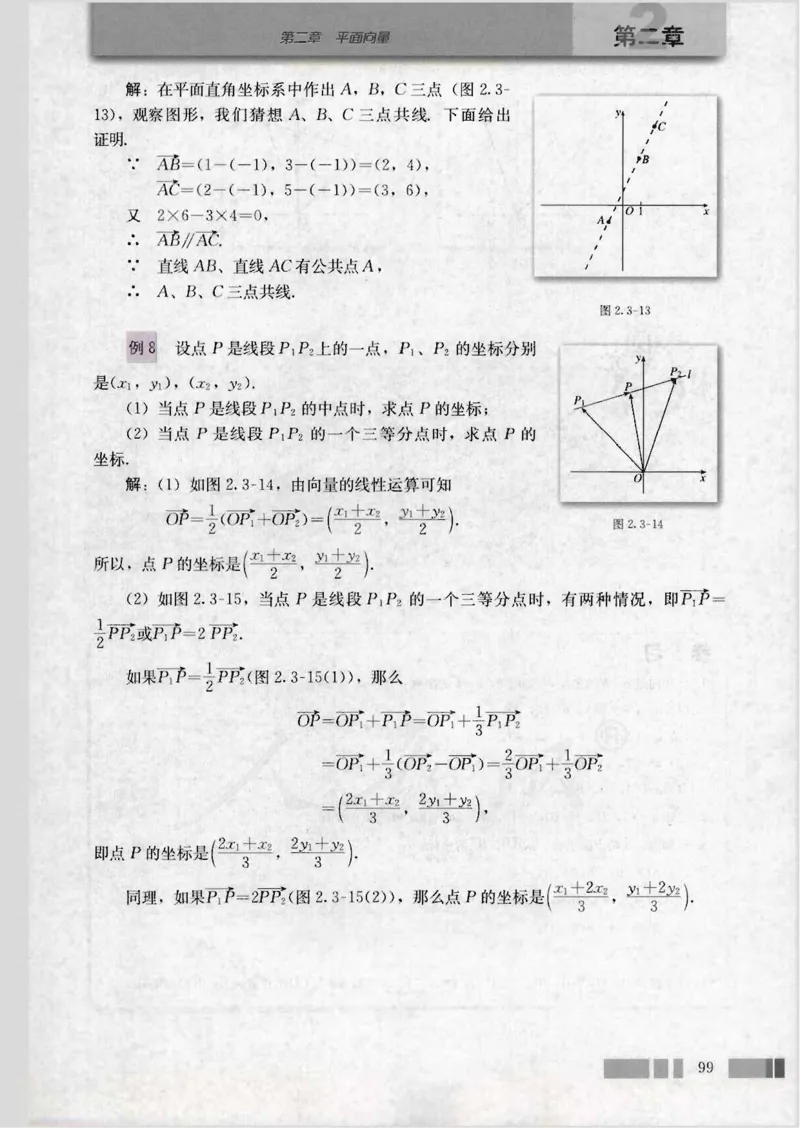 第二章 平面向量
第二章
解:在平面直角坐标系中作出 A,B,C 三点(图 2.3-
13),观察图形,我们猜想 A、B、C 三点共线. 下面给出
证明.
∵ \overrightarrow{AB}=(1-(-1),3-(-1))=(2,4),
\overrightarrow{AC}=(2-(-1),5-(-1))=(3,6),
又 2×6-3×4=0,
∴ \overrightarrow{AB}∥\overrightarrow{AC}.
∵ 直线 AB、直线 AC 有公共点 A,
∴ A、B、C 三点共线.
y
C
B
O 1
x
A
图 2.3-13
例 8 设点 P 是线段 P₁P₂上的一点,P₁、P₂ 的坐标分别
是(x₁,y₁),(x₂,y₂).
(1) 当点 P 是线段 P₁P₂ 的中点时,求点 P 的坐标;
(2) 当点 P 是线段 P₁P₂ 的一个三等分点时,求点 P 的
坐标.
y
P₂ l
P
P₁
O
x
图 2.3-14
解:(1) 如图 2.3-14,由向量的线性运算可知
\overrightarrow{OP}=\frac{1}{2}(\overrightarrow{OP₁}+\overrightarrow{OP₂})=(\frac{x₁+x₂}{2},\frac{y₁+y₂}{2}).
所以,点 P 的坐标是(\frac{x₁+x₂}{2},\frac{y₁+y₂}{2}).
(2) 如图 2.3-15,当点 P 是线段 P₁P₂ 的一个三等分点时,有两种情况,即\overrightarrow{P₁P}=
\frac{1}{2}\overrightarrow{PP₂}或\overrightarrow{P₁P}=2\overrightarrow{PP₂}.
如果\overrightarrow{P₁P}=\frac{1}{2}\overrightarrow{PP₂}(图 2.3-15(1)),那么
\overrightarrow{OP}=\overrightarrow{OP₁}+\overrightarrow{P₁P}=\overrightarrow{OP₁}+\frac{1}{3}\overrightarrow{P₁P₂}
=\overrightarrow{OP₁}+\frac{1}{3}(\overrightarrow{OP₂}-\overrightarrow{OP₁})=\frac{2}{3}\overrightarrow{OP₁}+\frac{1}{3}\overrightarrow{OP₂}
=(\frac{2x₁+x₂}{3},\frac{2y₁+y₂}{3}),
即点 P 的坐标是(\frac{2x₁+x₂}{3},\frac{2y₁+y₂}{3}).
同理,如果\overrightarrow{P₁P}=2\overrightarrow{PP₂}(图 2.3-15(2)),那么点 P 的坐标是(\frac{x₁+2x₂}{3},\frac{y₁+2y₂}{3}).
99